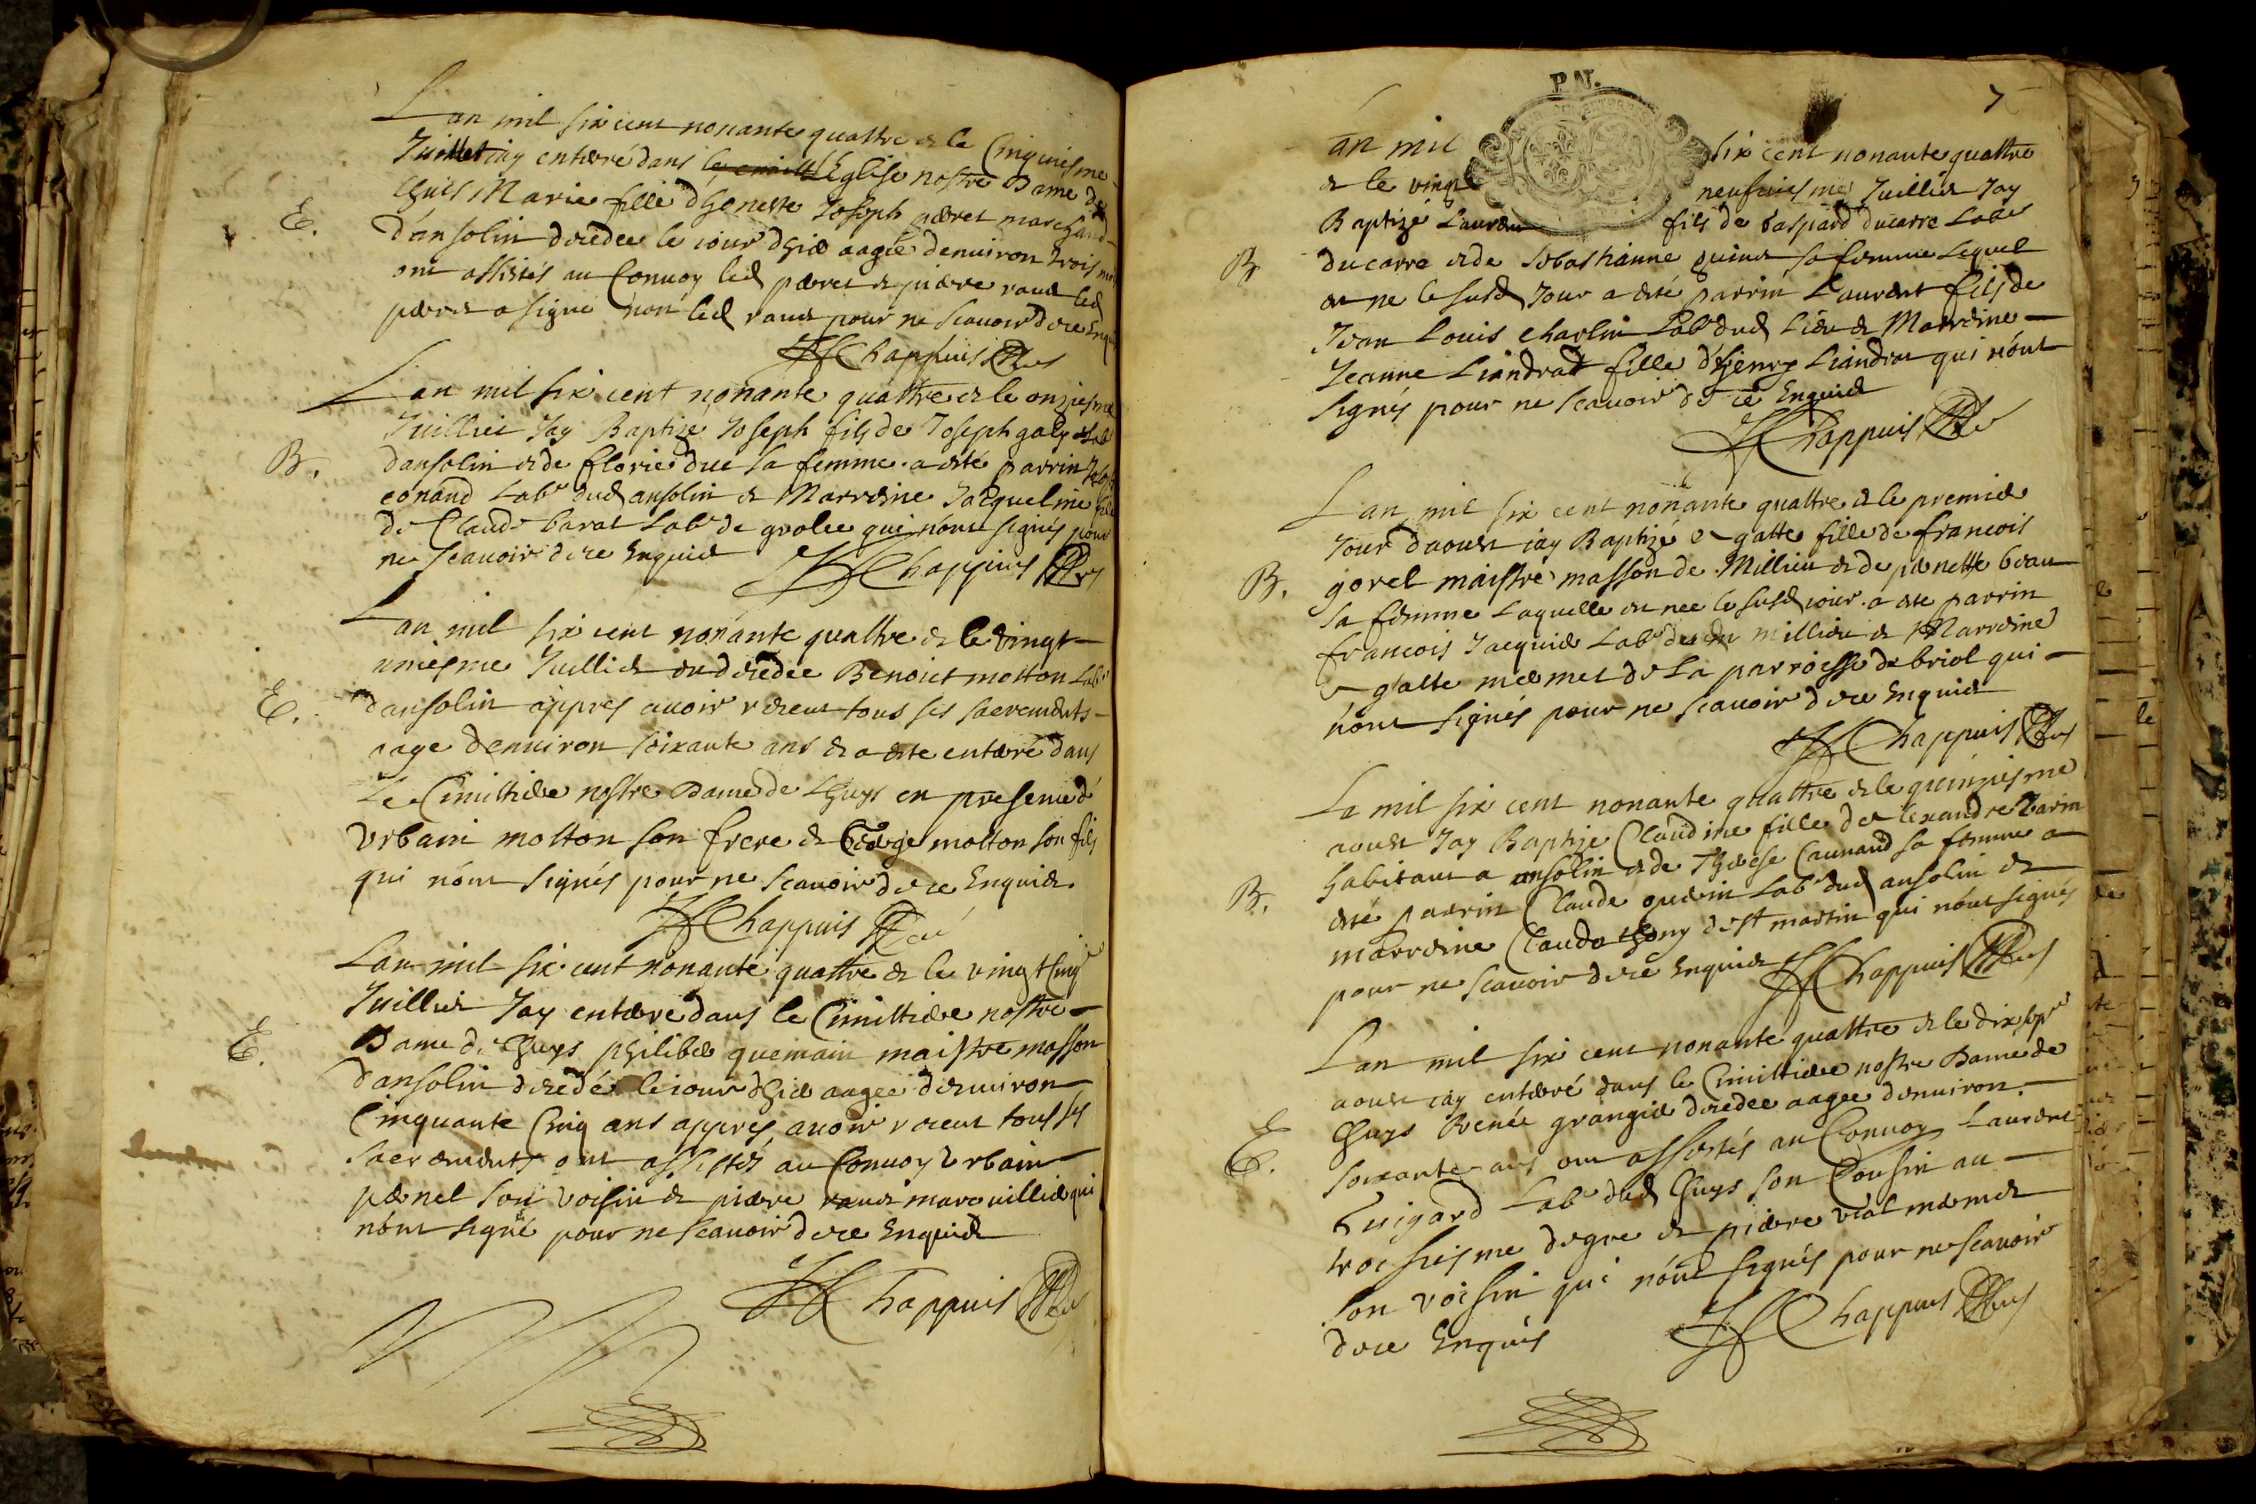 Lan mil six cent nonante quattre & le Cinquiesme
Juillet iay enterré dans le Eglise nostre Dame de
Lhuis Marie fille dheneste Joseph peret marchand
E.
d'ansolin decedee le iour dhier aagée denuiron trois
ont assistés au Conuoy led peret & pierre led
peret a signé non led pour ne scauoir de ce Enquis
Chappuis
Lan mil six cent nonante quattre & le onziesme
Juillet Jay Baptizé Joseph fils de Joseph galy Lab
B.
dansolin & de florie duc sa femme a esté parrin
conand Labr dud ansolin & Marreine Jacqueline
de Claude barat Labr de grolee qui nont signés pour
ne scauoir de ce Enquis
Chappuis
Lan mil six cent nonante quattre & le vingt
uniesme Juillet est decedée Benoict motton Labr
E.
dansolin appres auoir receu tous ses sacrements
aage denuiron soixante ans & a este enterré dans
Le Cimittiere nostre Dame de Lhuys en presence d
Urbain motton son frere & George motton son fils
qui n'ont signés pour ne scauoir de ce Enquis
Chappuis Curé
Lan mil six cent nonante quattre & le vingt Cinq
Juillet Jay enterré dans le Cimittiere nostre
E.
Dame de Lhuys philibert quemain maistre masson
dansolin decedé le iour dhier aagee denuiron
Cinquante Cinq ans appres auoir receu tous ses
sacrements ont assistés au Conuoy Urbain
penel son voisin & pierre maruillier qui
n'ont signé pour ne scauoir de ce Enquis
Chappuis
P.N.
7
an mil six cent nonante quattre
& le vingt neufuiesme Juillet Jay
Baptizé Laurent fils de Gaspard ducarre Labr
B.
ducarre & de Sebastianne sa femme Lequel
est ne le susd Jour a esté parrin Laurent fils de
Jean Louis Charlin Labr dud Lieu & Marreine
Jeanne Liandrat fille d'henry Liandrat qui n'ont
signés pour ne scauoir de ce Enquis
Chappuis
Lan mil six cent nonante quattre & le premier
Jour daoust iay Baptizé gatte fille de francois
B.
gorel maistre masson de Millieu & de pernette beau
sa femme Laquelle est nee le susd iour a este parrin
francois Jacquier Labr du millieu & Marreine
gatte mermet de La parroisse de briol qui
n'ont signés pour ne scauoir de ce Enquis
Chappuis
La mil six cent nonante quattre & le quinziesme
aoust Jay Baptizé Claudine fille d'alexandre Varin
habitant a ansolin & de Therese Caunand sa femme a
B.
esté parrin Claude Labr dud ansolin &
marreine Clauda thony de st martin qui n'ont signés
pour ne scauoir de ce Enquis
Chappuis
Lan mil six cent nonante quattre & le dixsept
aoust iay enterré dans le Cimittiere nostre Dame de
E.
Lhuys Renée grangier decedee aagee denuiron
soixante ans ont assistés au Conuoy Laurent
Guigard Labr dud Lhuys son Cousin au
troisiesme degre & pierre vial mermet
son voisin qui n'ont signés pour ne scauoir
de ce Enquis
Chappuis